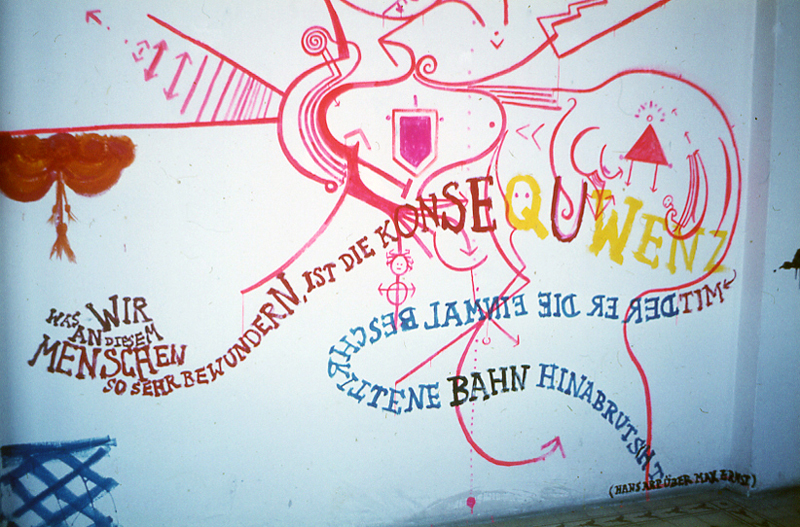 WAS WIR
AN DIESEM
MENSCHEN
SO SEHR BEWUNDERN, IST DIE KONSEQUWENZ
MIT DER ER DIE EINMAL BESCHRITTENE BAHN HINABRUTSCHT
(HANS ARP ÜBER MAX ERNST)